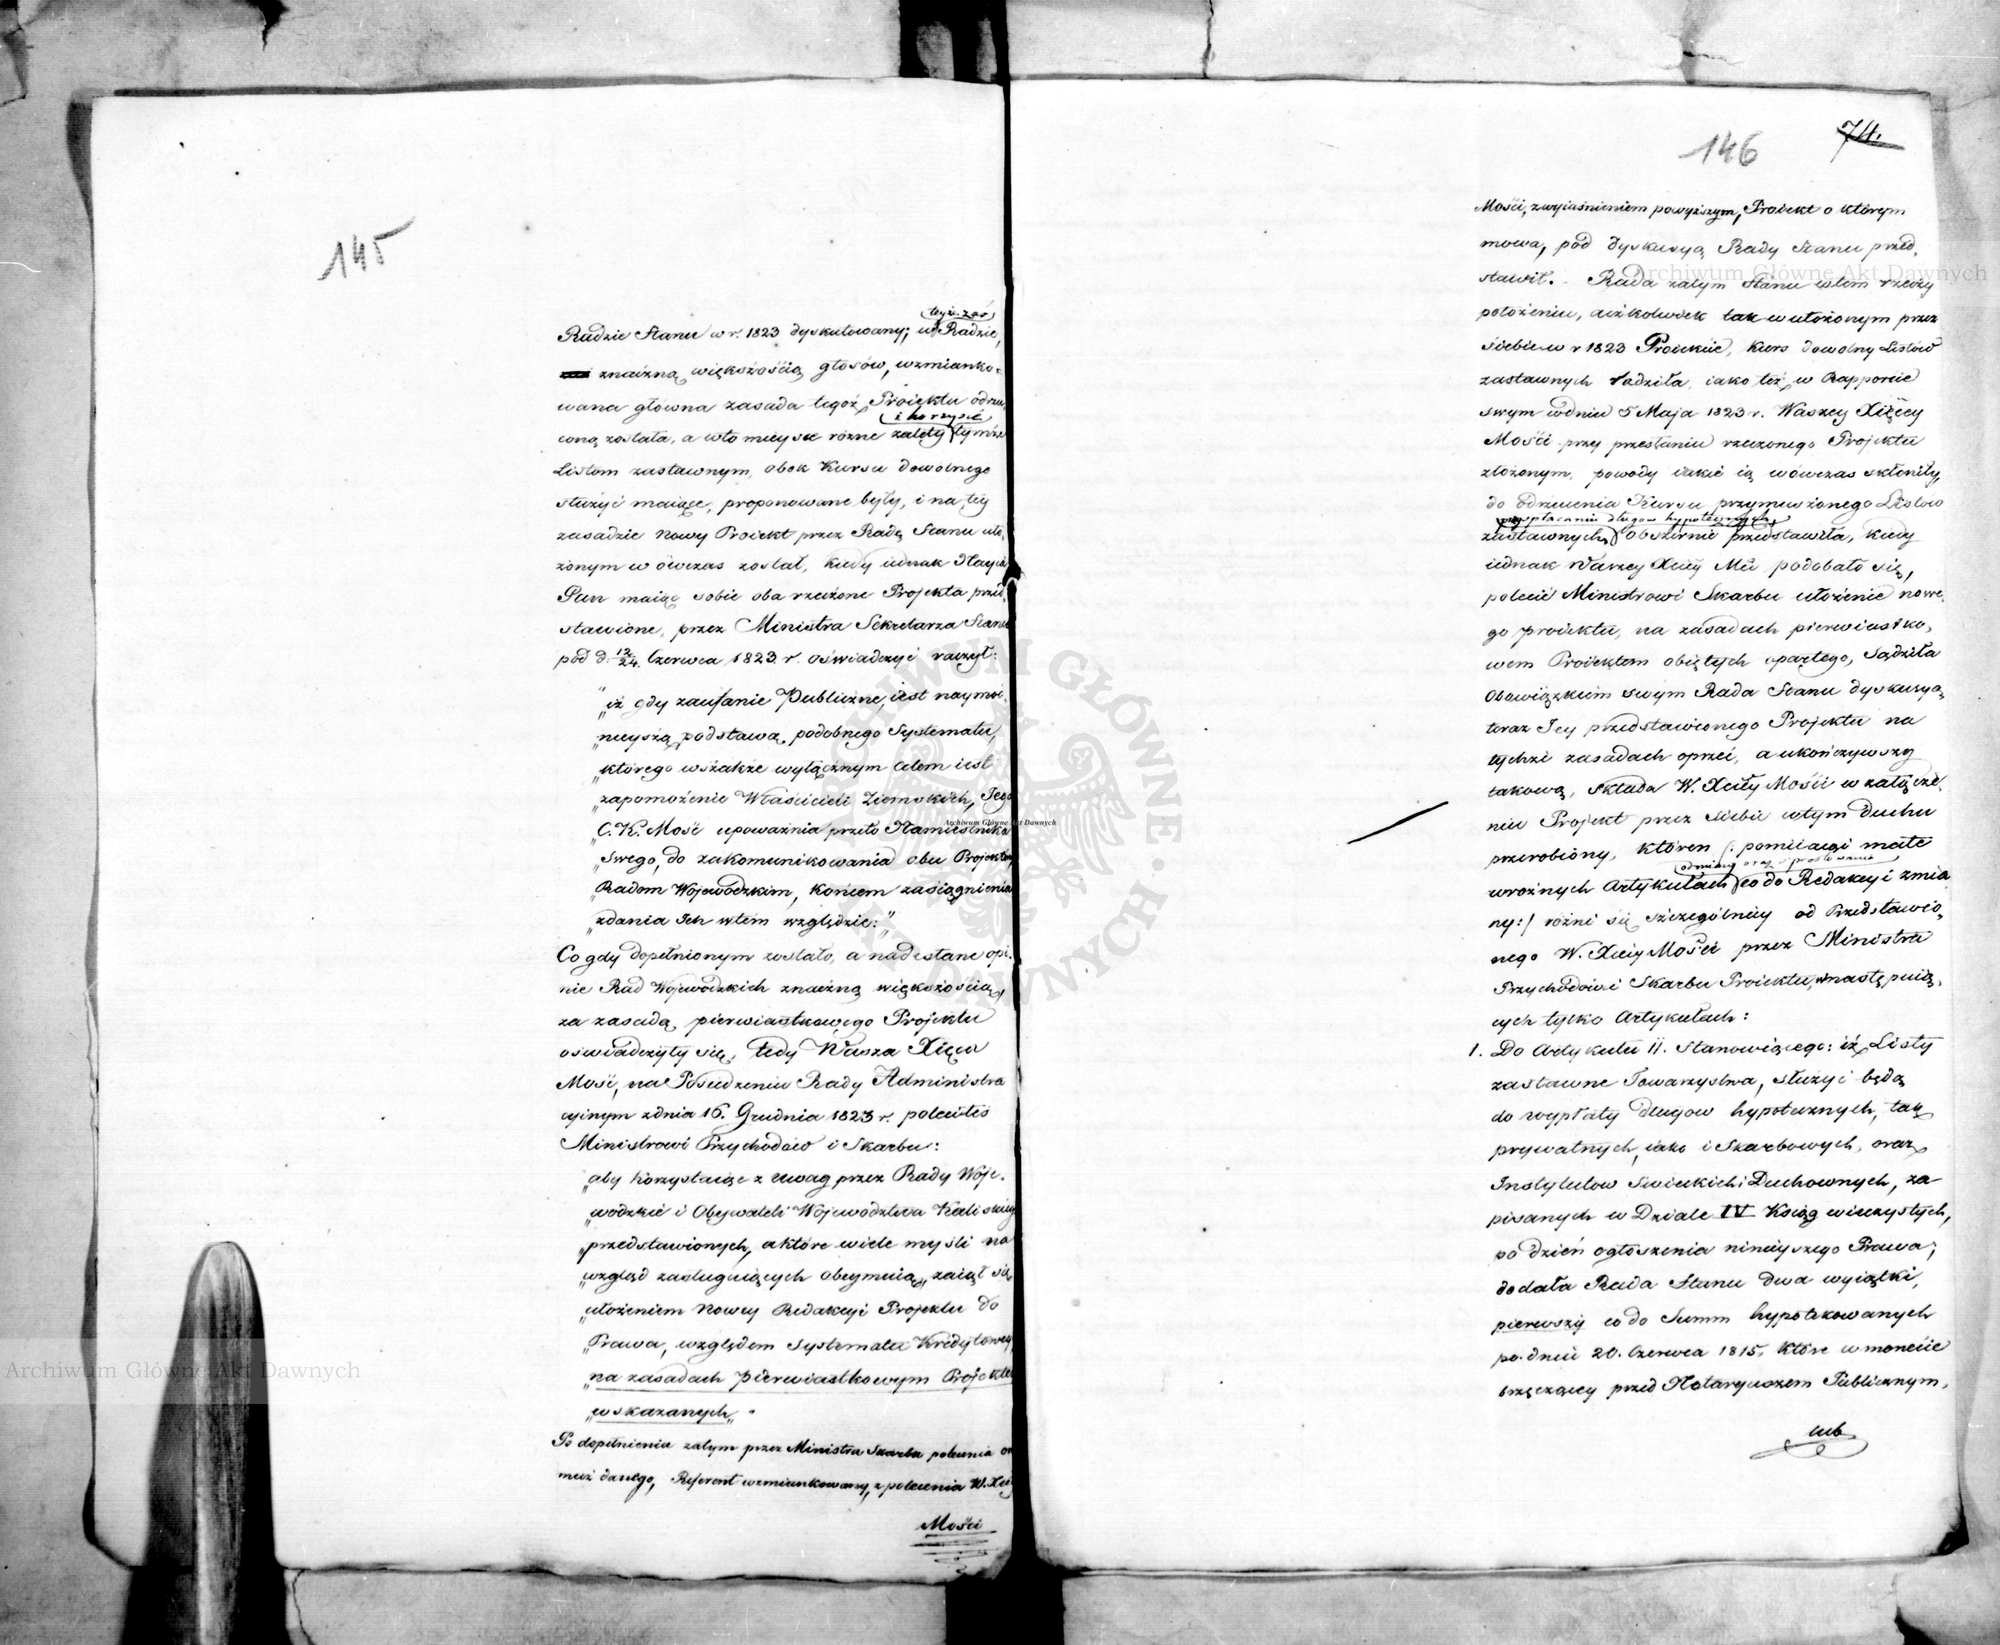 145
teyże zaś
Radzie Stanu w r. 1823 dyskutowany; w Radzie,
znaczną większością głosów, wzmianko=
wana główna zasada tegoż Proiektu odrzu,
i korzyści
coną została, a wto mieysce różne zalety tymże
Listom zastawnym, obok kursu dowolnego
służyć maiące, proponowane były, i na tey
zasadzie nowy Proiekt przez Radę Stanu uło,
żonym w ówczas został, kiedy iednak Nayia
Pan maiąc sobie oba rzeczone Projekta przed,
stawione, przez Ministra Sekretarza Stanu
pod d. 12/24. Czerwca 1823. r. oświadczyć raczył:
"iż gdy zaufanie Publiczne, iest naymoc.
"nieyszą podstawą podobnego Systematu,
"którego wszakże wyłącznym celem iest
"zapomożenie Właścicieli Ziemskich, Jego
"C. K. Mość upoważnia przeto Namiestnika
"Swego, do zakomunikowania obu Projektów
"Radom Wojewódzkim, końcem zasiągnienia
"zdania Ich wtem względzie:"
Co gdy dopełnionym zostało, a nadesłane opi.
nie Rad Wojewodzkich znaczną większością,
za zasadą pierwiastkowego Projektu
oswiadczyły się, tedy Wasza Xięca
Mość, na Posiedzeniu Rady Administra
cyinym zdnia 16. Grudnia 1823 r. poleciłeś
Ministrowi Przychodów i Skarbu:
"aby korzystaiąc z uwag przez Rady Woje.
"wodzkie i Obywateli Województwa Kaliskiey
"przedstawionych, a które wiele myśli na
"wzgląd zasługuiących obeymuią, zaiął się
"ułożeniem nowey Redakcyi Projektu do
"Prawa, względem Systematu Kredytowey
"na zasadach pierwiastkowym Projektem
"wskazanych".
Po dopełnieniu zatym przez Ministra Skarbu polecenia
muż danego, Referent wzmiankowany, z polecenia W. Xcey
Mości
146
74.
Mości, z wyiaśnieniem powyższym, Proiekt o którym
mowa, pod dyskusyą Rady Stanu przed,
stawił. Rada zatym Stanu wtem rzeczy
położeniu, aczkolwiek tak w ułożonym przez
siebie w r 1823 Proiekcie, kurs dowolny Listów
zastawnych radziła, iako też w Rapporcie
swym wdniu 5 Maja 1823 r. Waszey Xięcey
Mości przy przesłaniu rzeczonego Projektu
złożonym, powody iakie ią wówczas skłoniły,
do odrzucenia Kursu przymuszonego Listów
w spłacaniu długow hypotecznych
zastawnych obszernie przedstawiła, kiedy
iednak Waszey Xcey Mci podobało się,
polecić Ministrowi Skarbu ułożenie nowe.
go proiektu, na zasadach pierwiastko,
wem Proiektem obiętych opartego, Sądziła
Obowiązkiem swym Rada Stanu dyskusyą
teraz Jey przedstawionego Projektu na
tychże zasadach oprzeć, a ukończywszy
takową, składa W. Xcey Mości w załącze.
niu Projekt przez siebie wtym duchu
przerobiony, któren /: pomiiaiąc małe
odmiany oraz sprostowania
wróżnych Artykułach co do Redakcyi zmia
ny:/ różni się szczególniey od Przedstawio,
nego W. Xcey Mości przez Ministra
Przychodów i Skarbu Proiektu, w następuią,
cych tylko Artykułach:
1. Do Artykułu 11. stanowiącego: iż Listy
zastawne Towarzystwa, służyć będą
do wypłaty długow hypotecznych, tak
prywatnych, iako i Skarbowych, oraz
Instytutow Swieckich i Duchownych, za
pisanych w Dziale IV Ksiąg wieczystych,
po dzień ogłoszenia ninieyszego Prawa;
dodała Rada Stanu dwa wyiątki,
pierwszy co do Summ hypotekowanych
po dniu 20. Czerwca 1815, które w monecie
brzęczącey przed Notaryuszem Publicznym,
lub
Archiwum Główne Akt Dawnych
Archiwum Główne Akt Dawnych
Archiwum Główne Akt Dawnych
ARCHIWUM GŁÓWNE AKT DAWNYCH